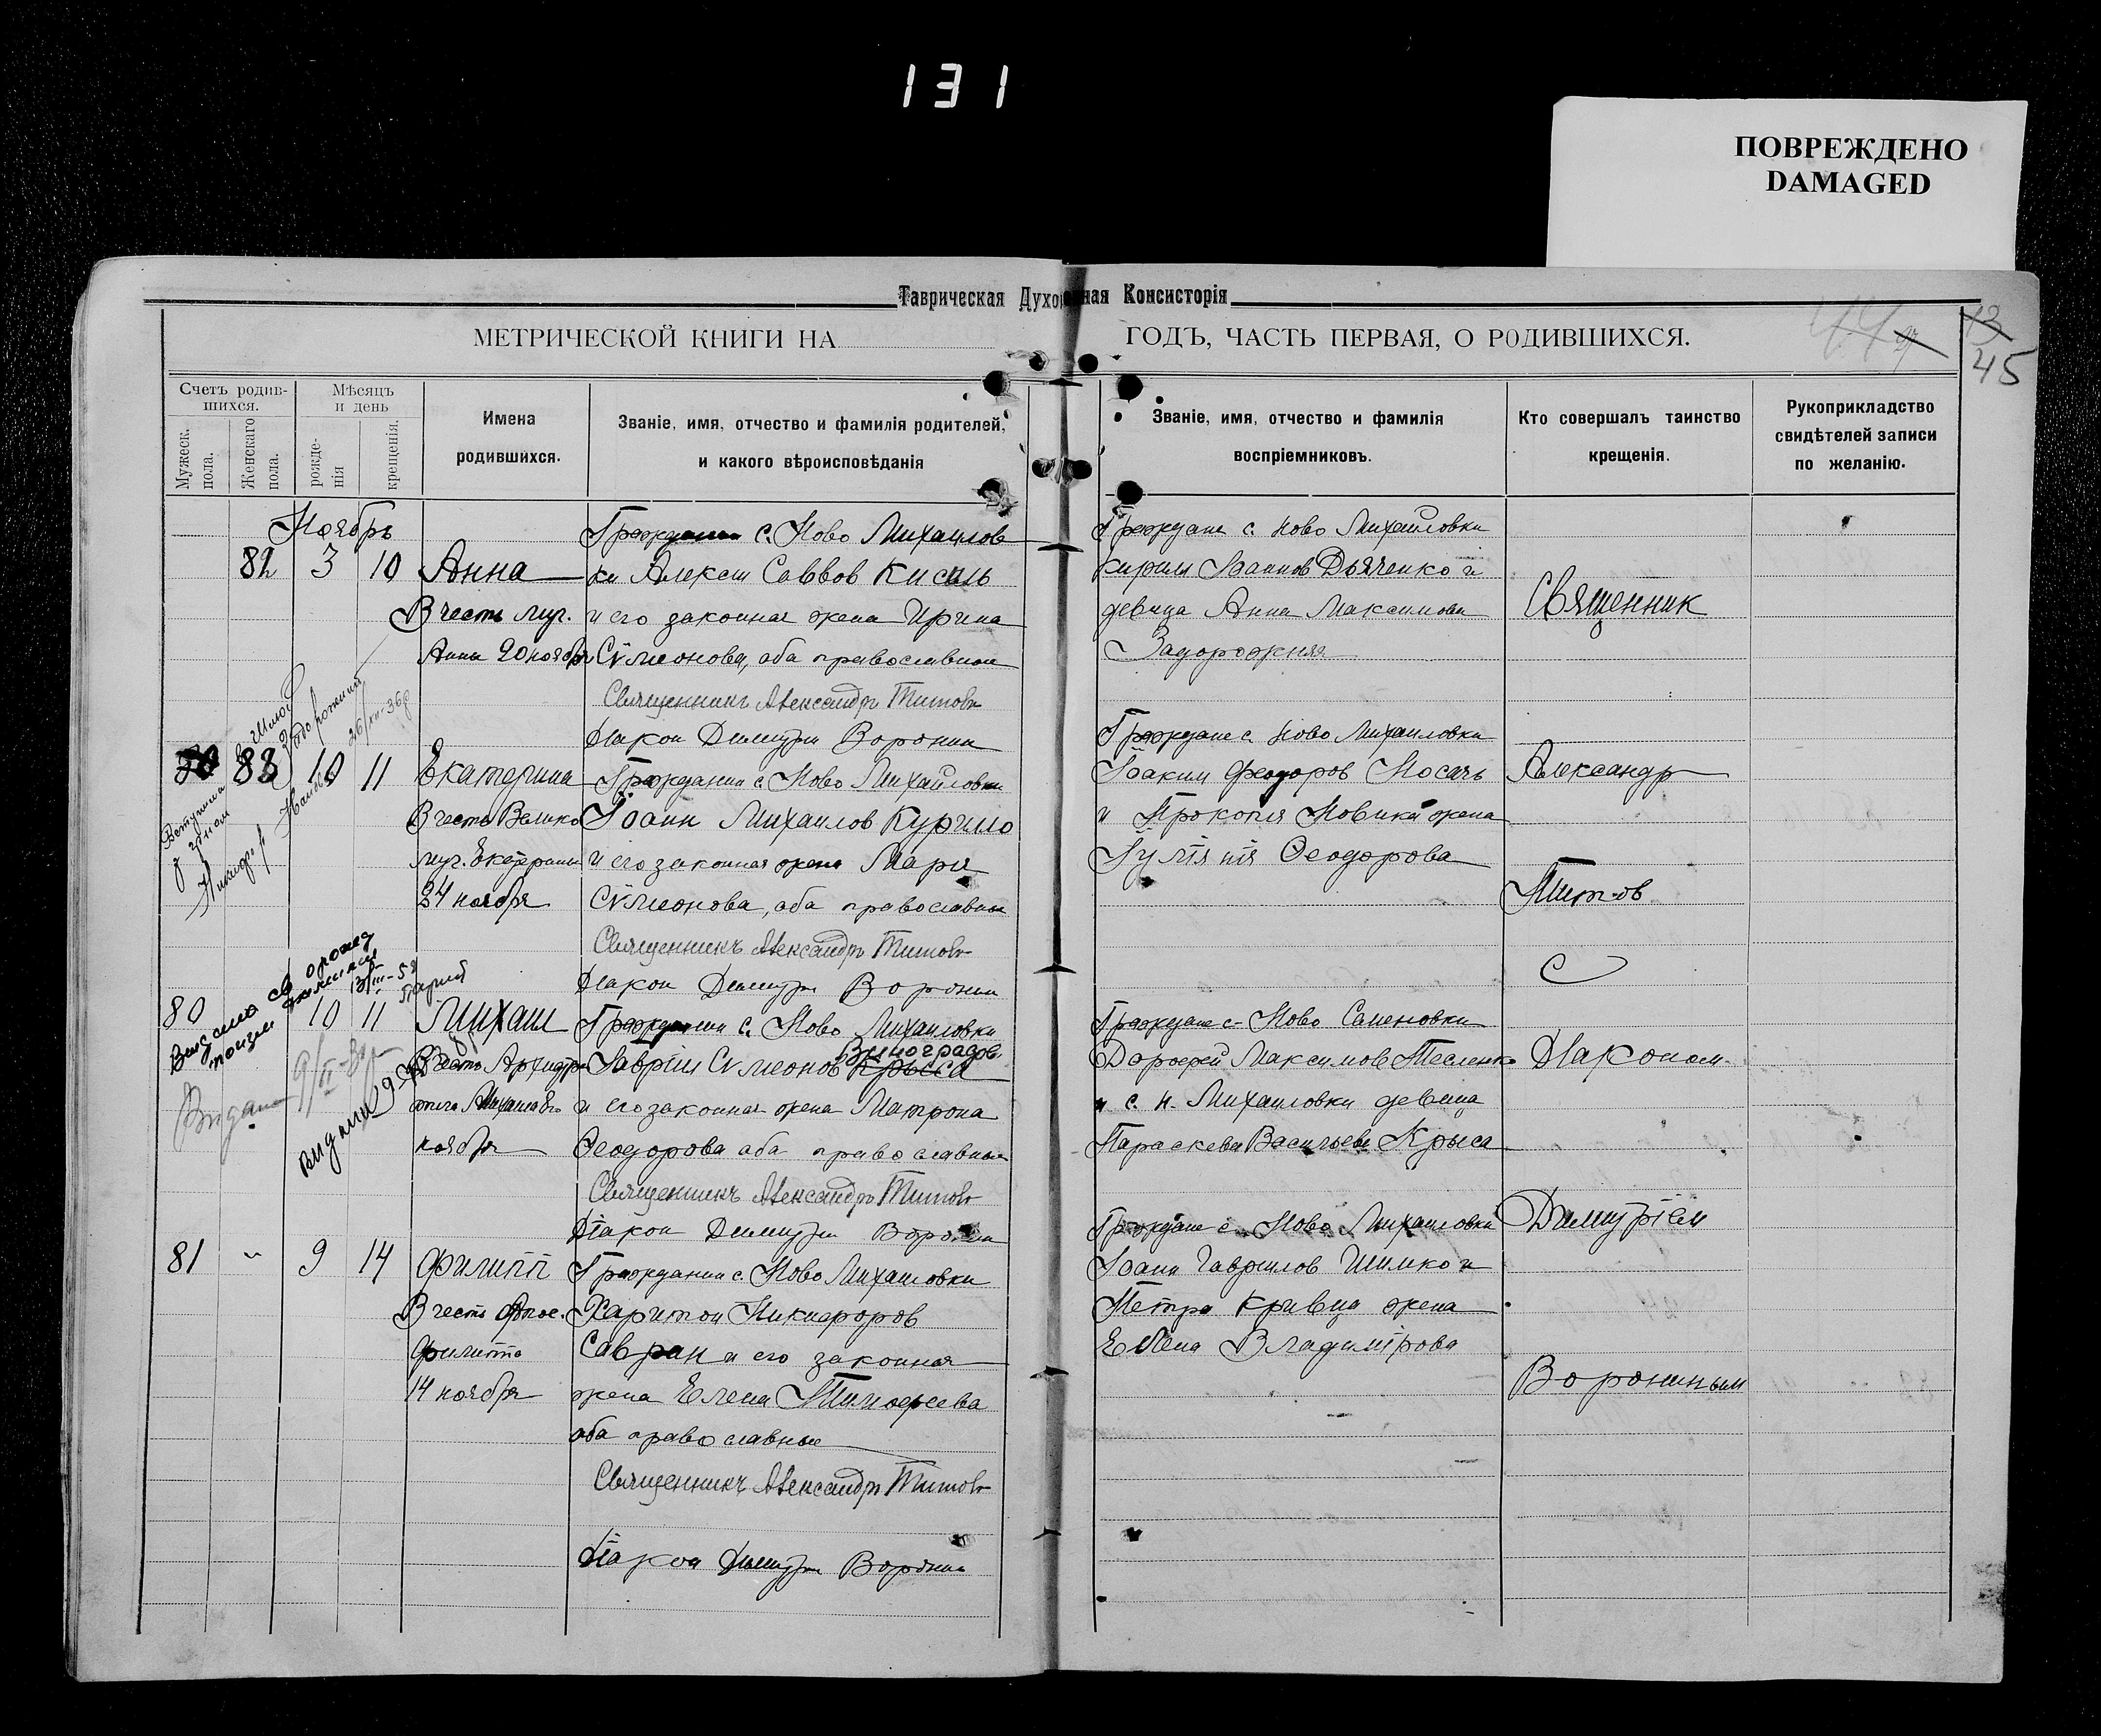 131
ПОВРЕЖДЕНО
DAMAGED
Таврическая Духовная Консисторія
МЕТРИЧЕСКОЙ КНИГИ НА
ГОДЪ, ЧАСТЬ ПЕРВАЯ, О РОДИВШИХСЯ.
13
45
Счетъ родив-
шихся.
Мѣсяцъ
и день
Мужеск.
пола.
Женскаго
пола.
рожде-
нія
крещенія.
Имена
родившихся.
Званіе, имя, отчество и фамилія родителей,
и какого вѣроисповѣданія
Званіе, имя, отчество и фамилія
воспріемниковъ.
Кто совершалъ таинство
крещенія.
Рукоприкладство
свидѣтелей записи
по желанію.
Ноябрь
82 3 10 Анна
В честь муч.
Анны 20 ноября
Гражданин с. Ново Михайлов
ки Алексий Саввов Кисель
и его законная жена Ирина
Сѵмеонова, оба православные
Священникъ Александръ Титовъ
Діакон Димитрий Воронин
Граждане с. Ново Михайловки
Кирилл Іоаннов Дьяченко и
девица Анна Максимова
Задорожняя
83 10 11 Екатерина
В честь Велико
муч. Екатерины
24 ноября
Гражданин с. Ново Михайловки
Іоанн Михаилов Курило
и его законная жена Мария
Сѵмеонова, оба православные
Священникъ Александръ Титовъ
Діакон Димитрий Воронин
Граждане с. Ново Михайловки
Іоаким Феодоров Носачь
и Прокопия Новика жена
Іулиания Феодорова
80 10 11 Михаил
В честь Архистра
тига Михаила 8го
ноября
Гражданин с. Ново Михайловки
Виноградов
Гавріил Сѵмеонов Крыса
и его законная жена Матрона
Феодорова оба православные
Священникъ Александръ Титовъ
Діакон Димитрий Воронин
Граждане с. Ново Семеновки
Дорофей Максимов Тесленко
и с. Н. Михайловки девица
Параскева Васильева Крыса
81 " 9 14 Филипп
В честь Апос.
Филиппа
14 ноября
Гражданин с. Ново Михайловки
Харитон Никифоров
Савран и его законная
жена Елена Тимофеева
оба православные
Священникъ Александръ Титовъ
Діакон Димитрий Воронин
Граждане с. Ново Михайловки
Іоанн Гавриилов Шимко и
Петра Кривца жена
Елена Владимірова
Священник
Александр
Титов
С
Діаконом
Димитріем
Ворониным